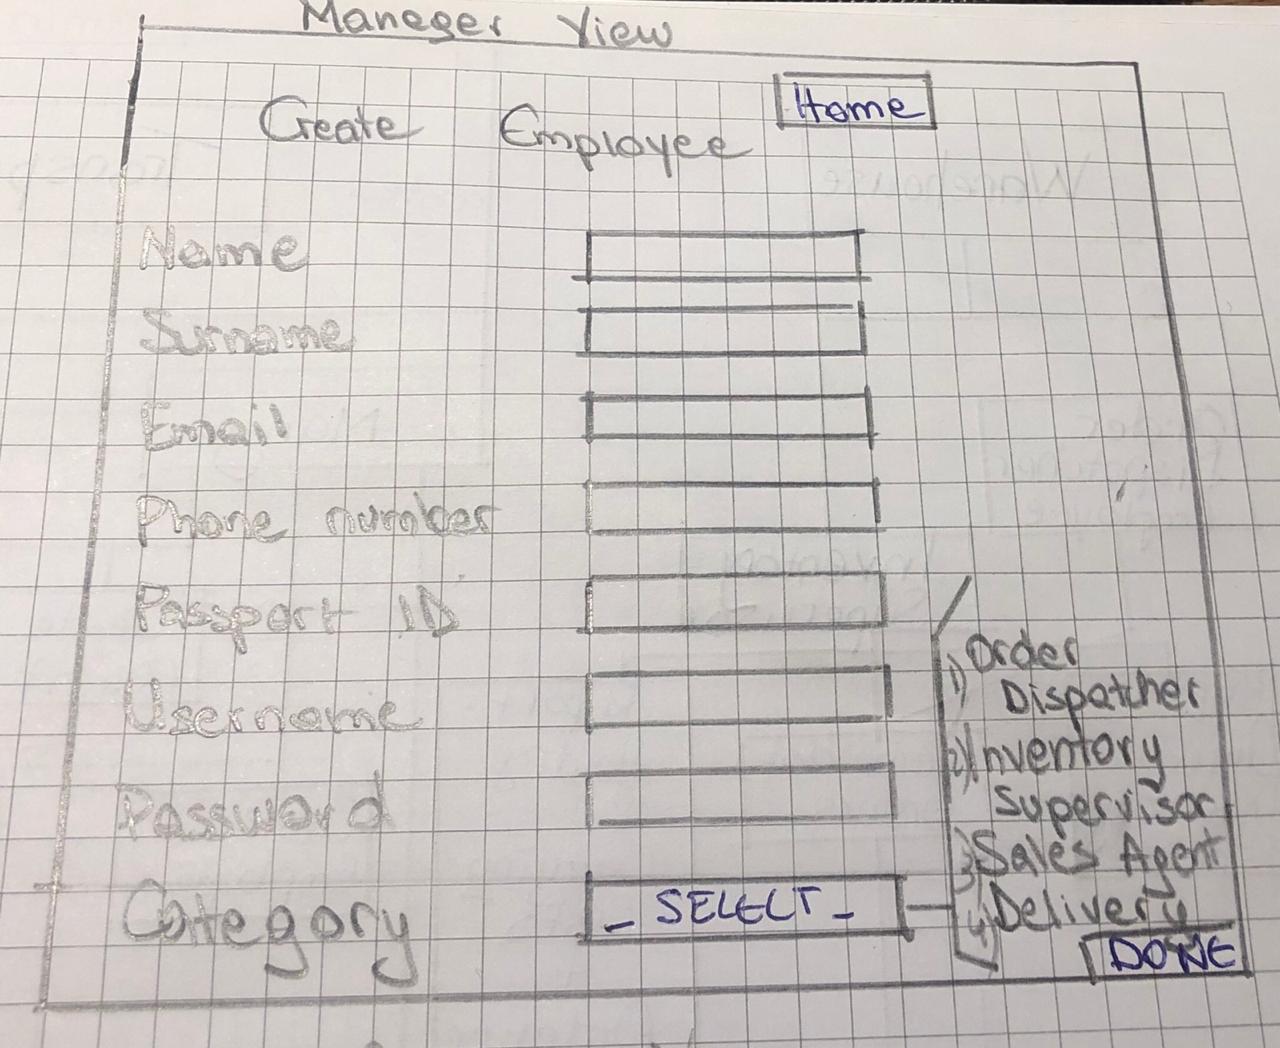 Maneger View
Create Employee Home
Name
Surname
Email
Phone number
Passport ID
Username
Password
Category _ SELECT _
1) Order
Dispatcher
2) Inventory
Supervisor
3) Sales Agent
4) Delivery
DONE